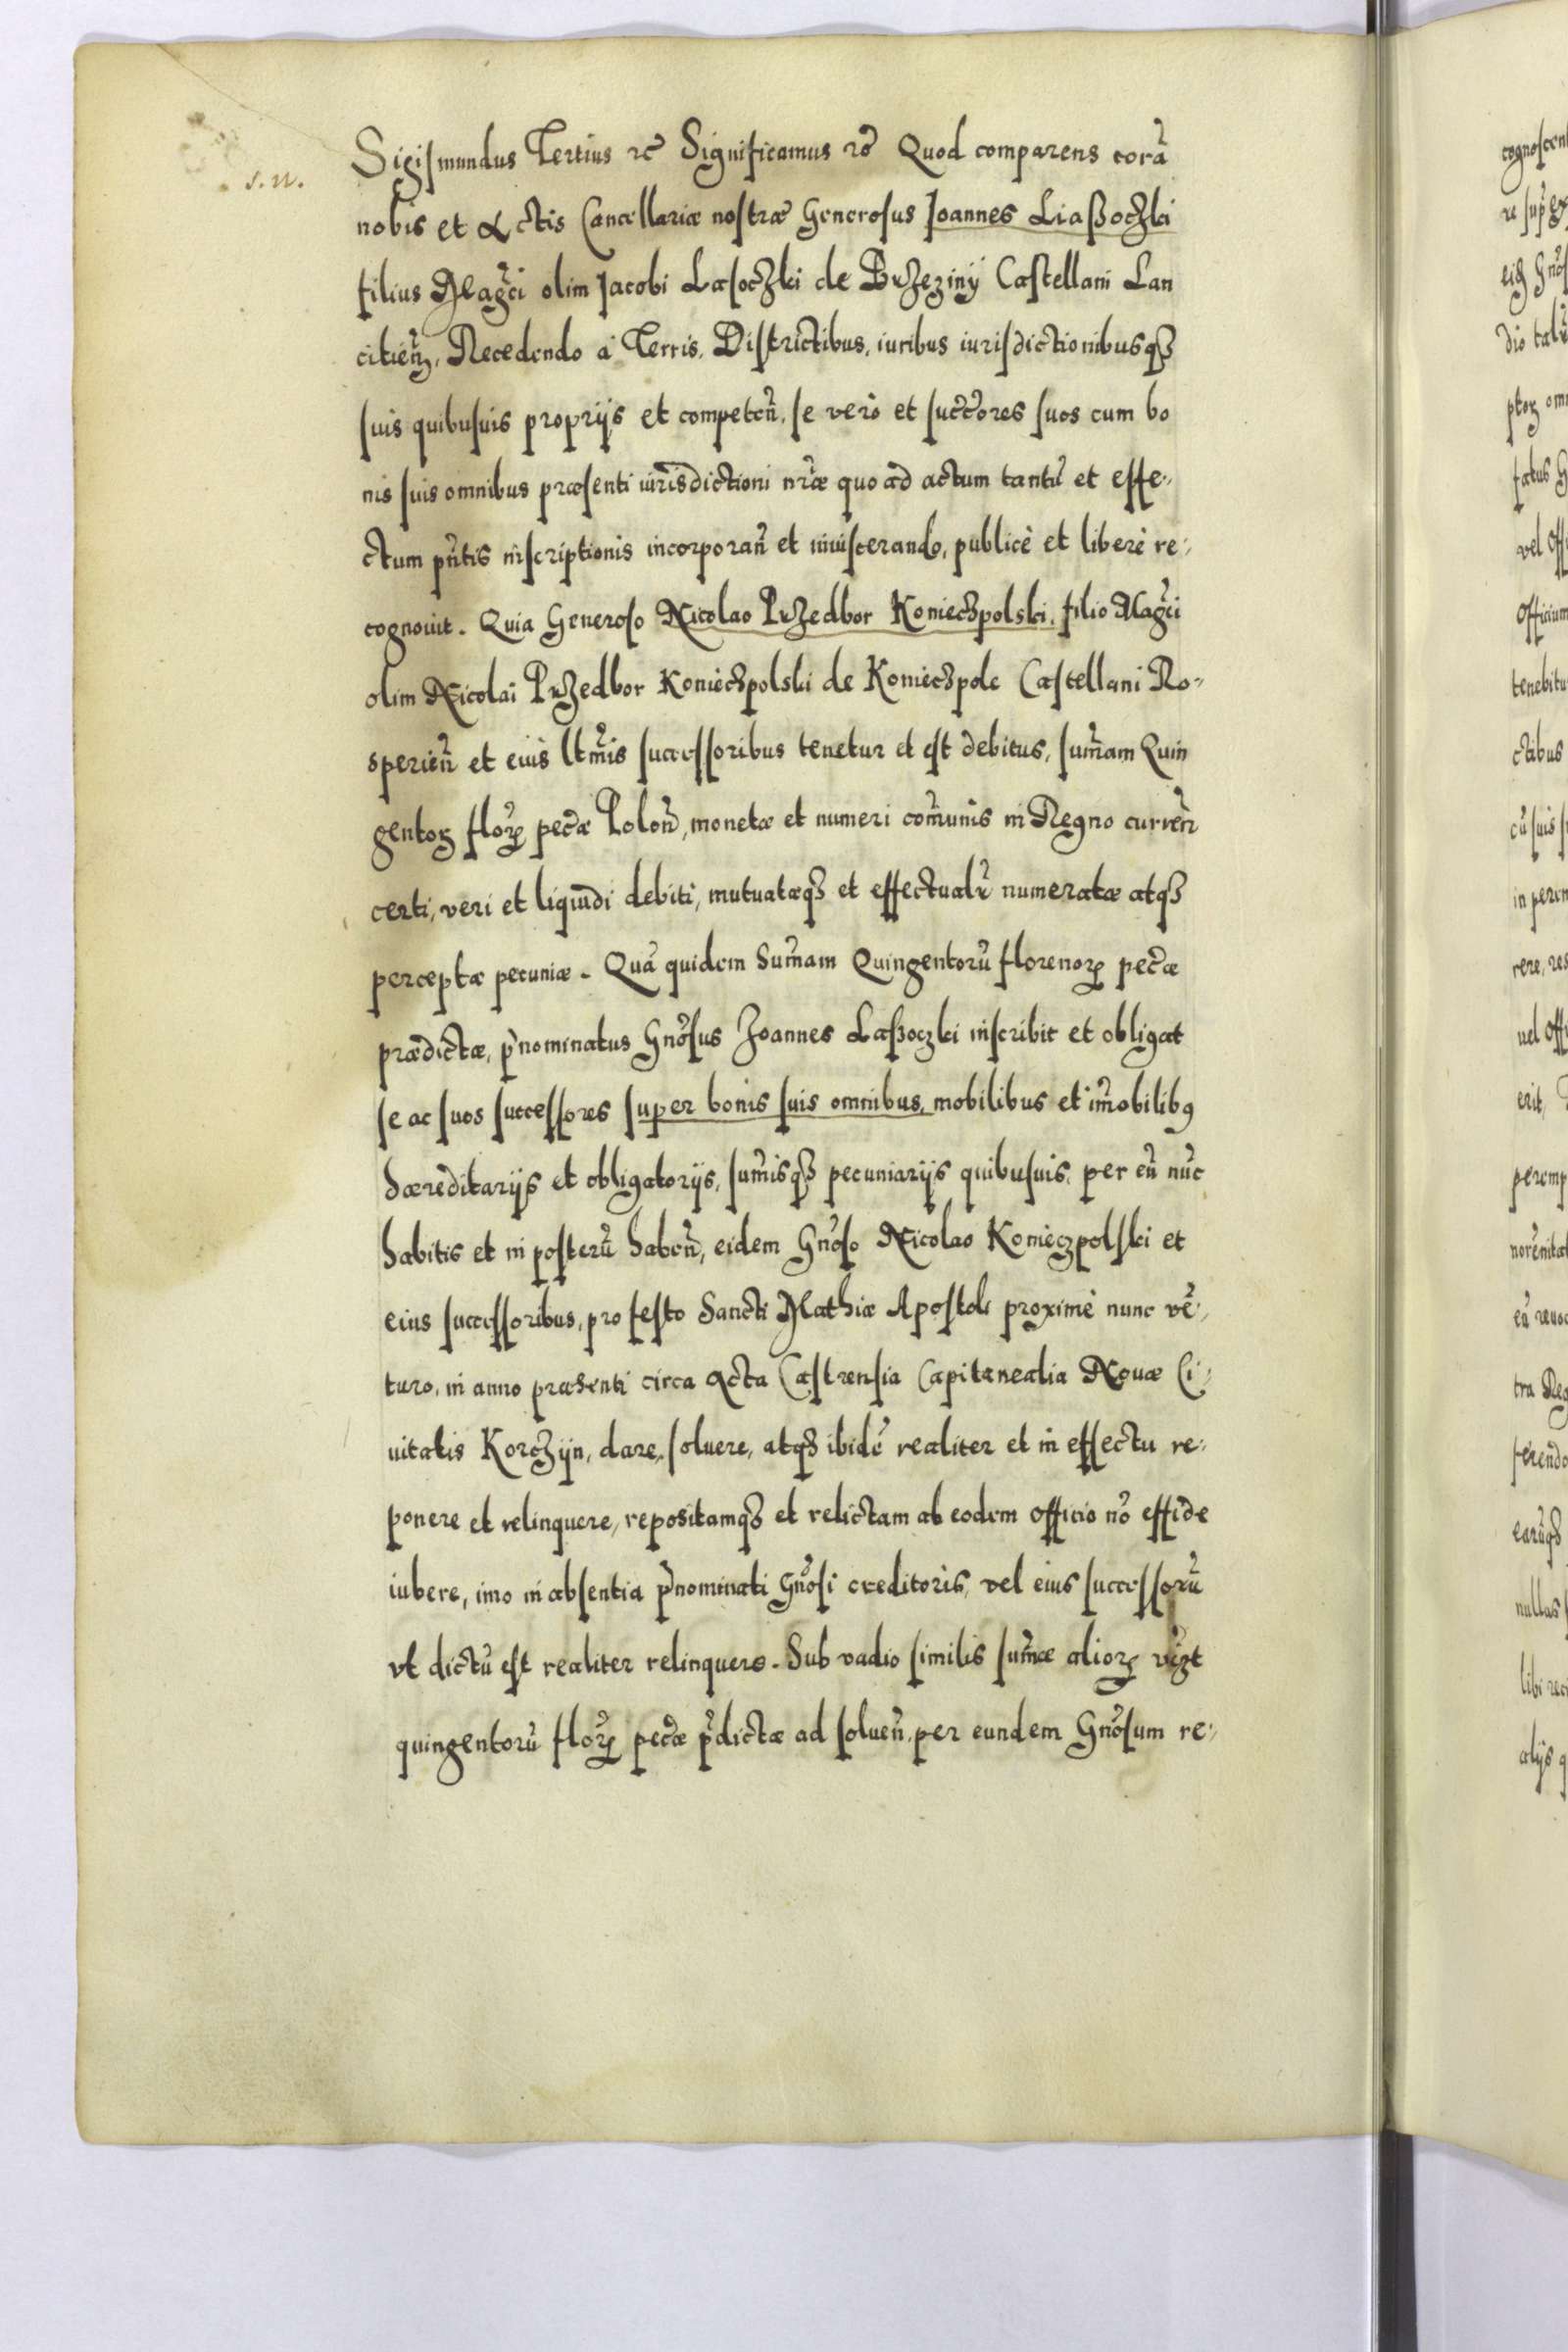 Sigismundus Tertius rē Significamus rō Quod comparens corā
s. n.
nobis et Actis Cancellariæ nostræ Generosus Joannes Liaßoczki
filius Magci olim Jacobi Lasoczki de Brzeziny Castellani Lan
citien, Recedendo à Terris, Districtibus, iuribus iurisdictionibusq3
suis quibusuis proprijs et competeñ, se verò et succores suos cum bo
nis suis omnibus præsenti iurisdictioni nræ quo ad actum tantū et effe-
ctum pñtis inscriptionis incorporañ et inuiscerando, publicè et liberè re-
cognouit. Quia Generoso Nicolao Przedbor Konieczpolski, filio Magci
olim Nicolai Przedbor Konieczpolski de Konieczpole Castellani Ro-
sperieñ et eius ltmis successoribus tenetur et est debitus, sumam Quin
gentoꝝ floꝝ pecæ Poloñ, monetæ et numeri comunis in Regno curreñ
certi, veri et liquidi debiti, mutuatæq3 et effectualr numeratæ atq3
perceptæ pecuniæ. Quā quidem Sumam Quingentorū florenoꝝ pecæ
prædictæ, pnominatus Gnosus Joannes Laßoczki inscribit et obligat
se ac suos successores super bonis suis omnibus, mobilibus et imobilibꝰ
hæreditarijs et obligatorijs, sumisq3 pecuniarijs quibusuis, per eū nūc
habitis et in posterū habeñ, eidem Gnoso Nicolao Koniecpolski et
eius successoribus, pro festo Sancti Mathiæ Apostoli proximè nunc vē-
turo, in anno præsenti circa Acta Castrensia Capitanealia Nouæ Ci-
uitatis Korczyn, dare, soluere, atq3 ibidē realiter et in effectu re-
ponere et relinquere, repositamq3 et relictam ab eodem officio nō effide
iubere, imo in absentia pnominati Gnosi creditoris, vel eius successorū
vt dictū est realiter relinquere. Sub vadio similis sumæ alioꝝ vizt
quingentorū floꝝ pecæ pdictæ ad solueñ, per eundem Gnosum re-